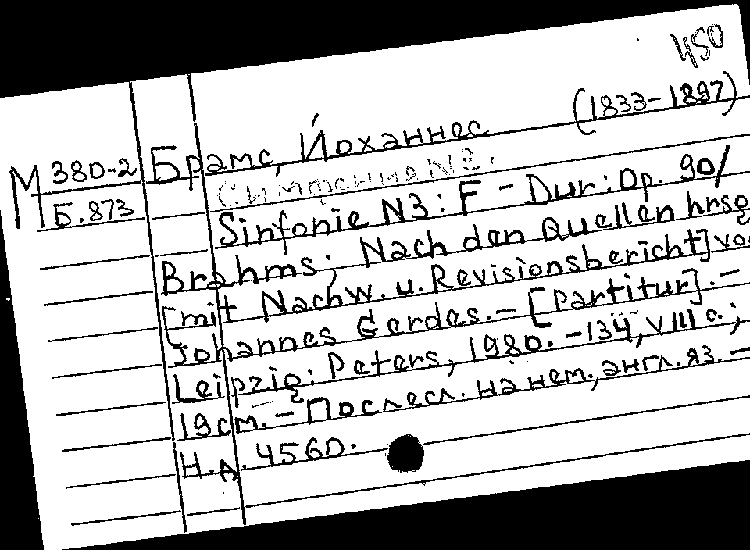 450
М 380-2 Брамс, Йоханнес (1833-1897)
Б.873 Симфония N3.
Sinfonie N3: F - Dur: Op. 90/
Brahms; Nach den Quellen hrsg
[mit Nachw. u. Revisionsbericht] von
Johannes Gerdes. - [Partitur]. -
Leipzig: Peters, 1980. - 134, VIII c.;
19 см. - Послесл. на нем., англ. яз. -
Н.д. 4560.